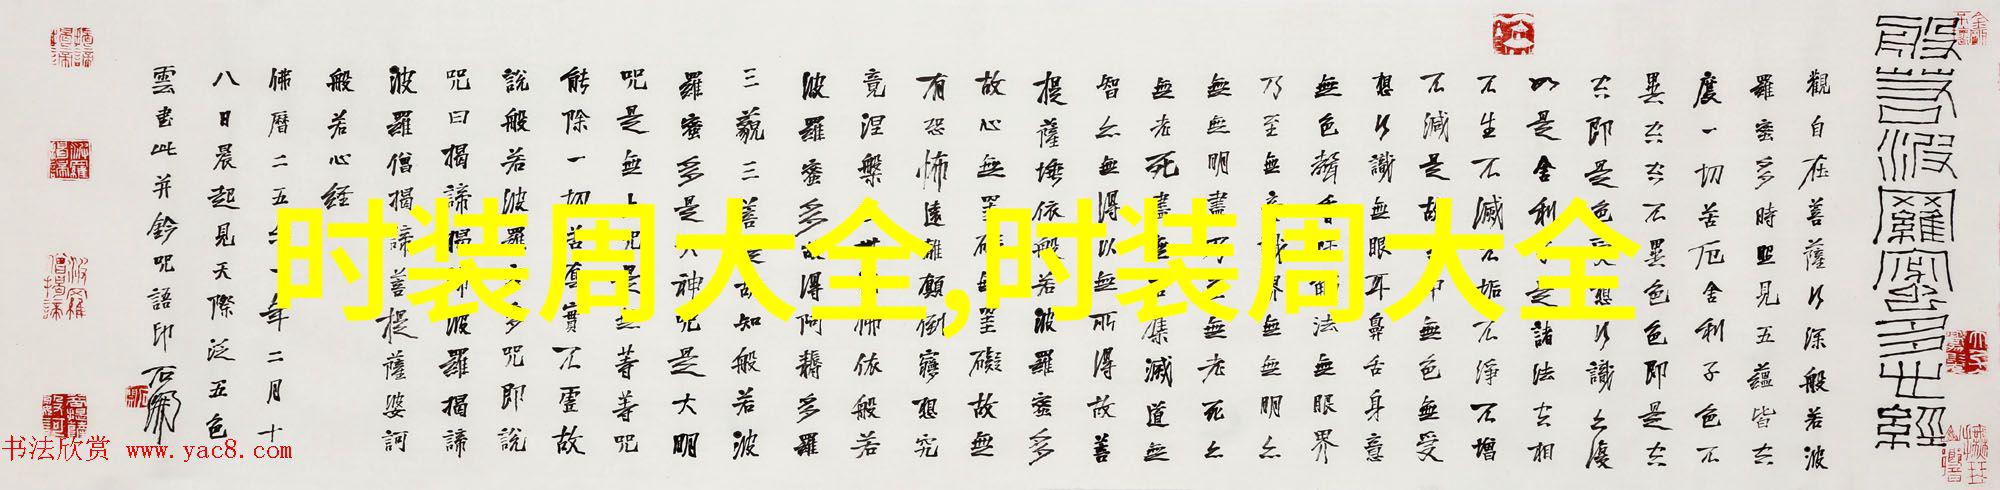 般若波羅蜜多心經
觀自在菩薩行深般若波
羅蜜多時照見五蘊皆空
度一切苦厄舍利子色不
異空空不異色色即是空
空即是色受想行識亦復
如是舍利子是諸法空相
不生不滅不垢不淨不增
不減是故空中無色無受
想行識無眼耳鼻舌身意
無色聲香味觸法無眼界
乃至無意識界無無明亦
無無明盡乃至無老死亦
無老死盡無苦集滅道無
智亦無得以無所得故菩
提薩埵依般若波羅蜜多
故心無罣礙無罣礙故無
有恐怖遠離顛倒夢想究
竟涅槃三世諸佛依般若
波羅蜜多故得阿耨多羅
三藐三菩提故知般若波
羅蜜多是大神咒是大明
咒是無上咒是無等等咒
能除一切苦真實不虛故
說般若波羅蜜多咒即說
咒曰揭諦揭諦波羅揭諦
波羅僧揭諦菩提薩婆訶
般若心経
佛曆二五一年二月十
八日晨起見天際泛五色
雲書此并鈐咒語印
时装周大全,时装周大全
书法欣赏 www.yac8.com